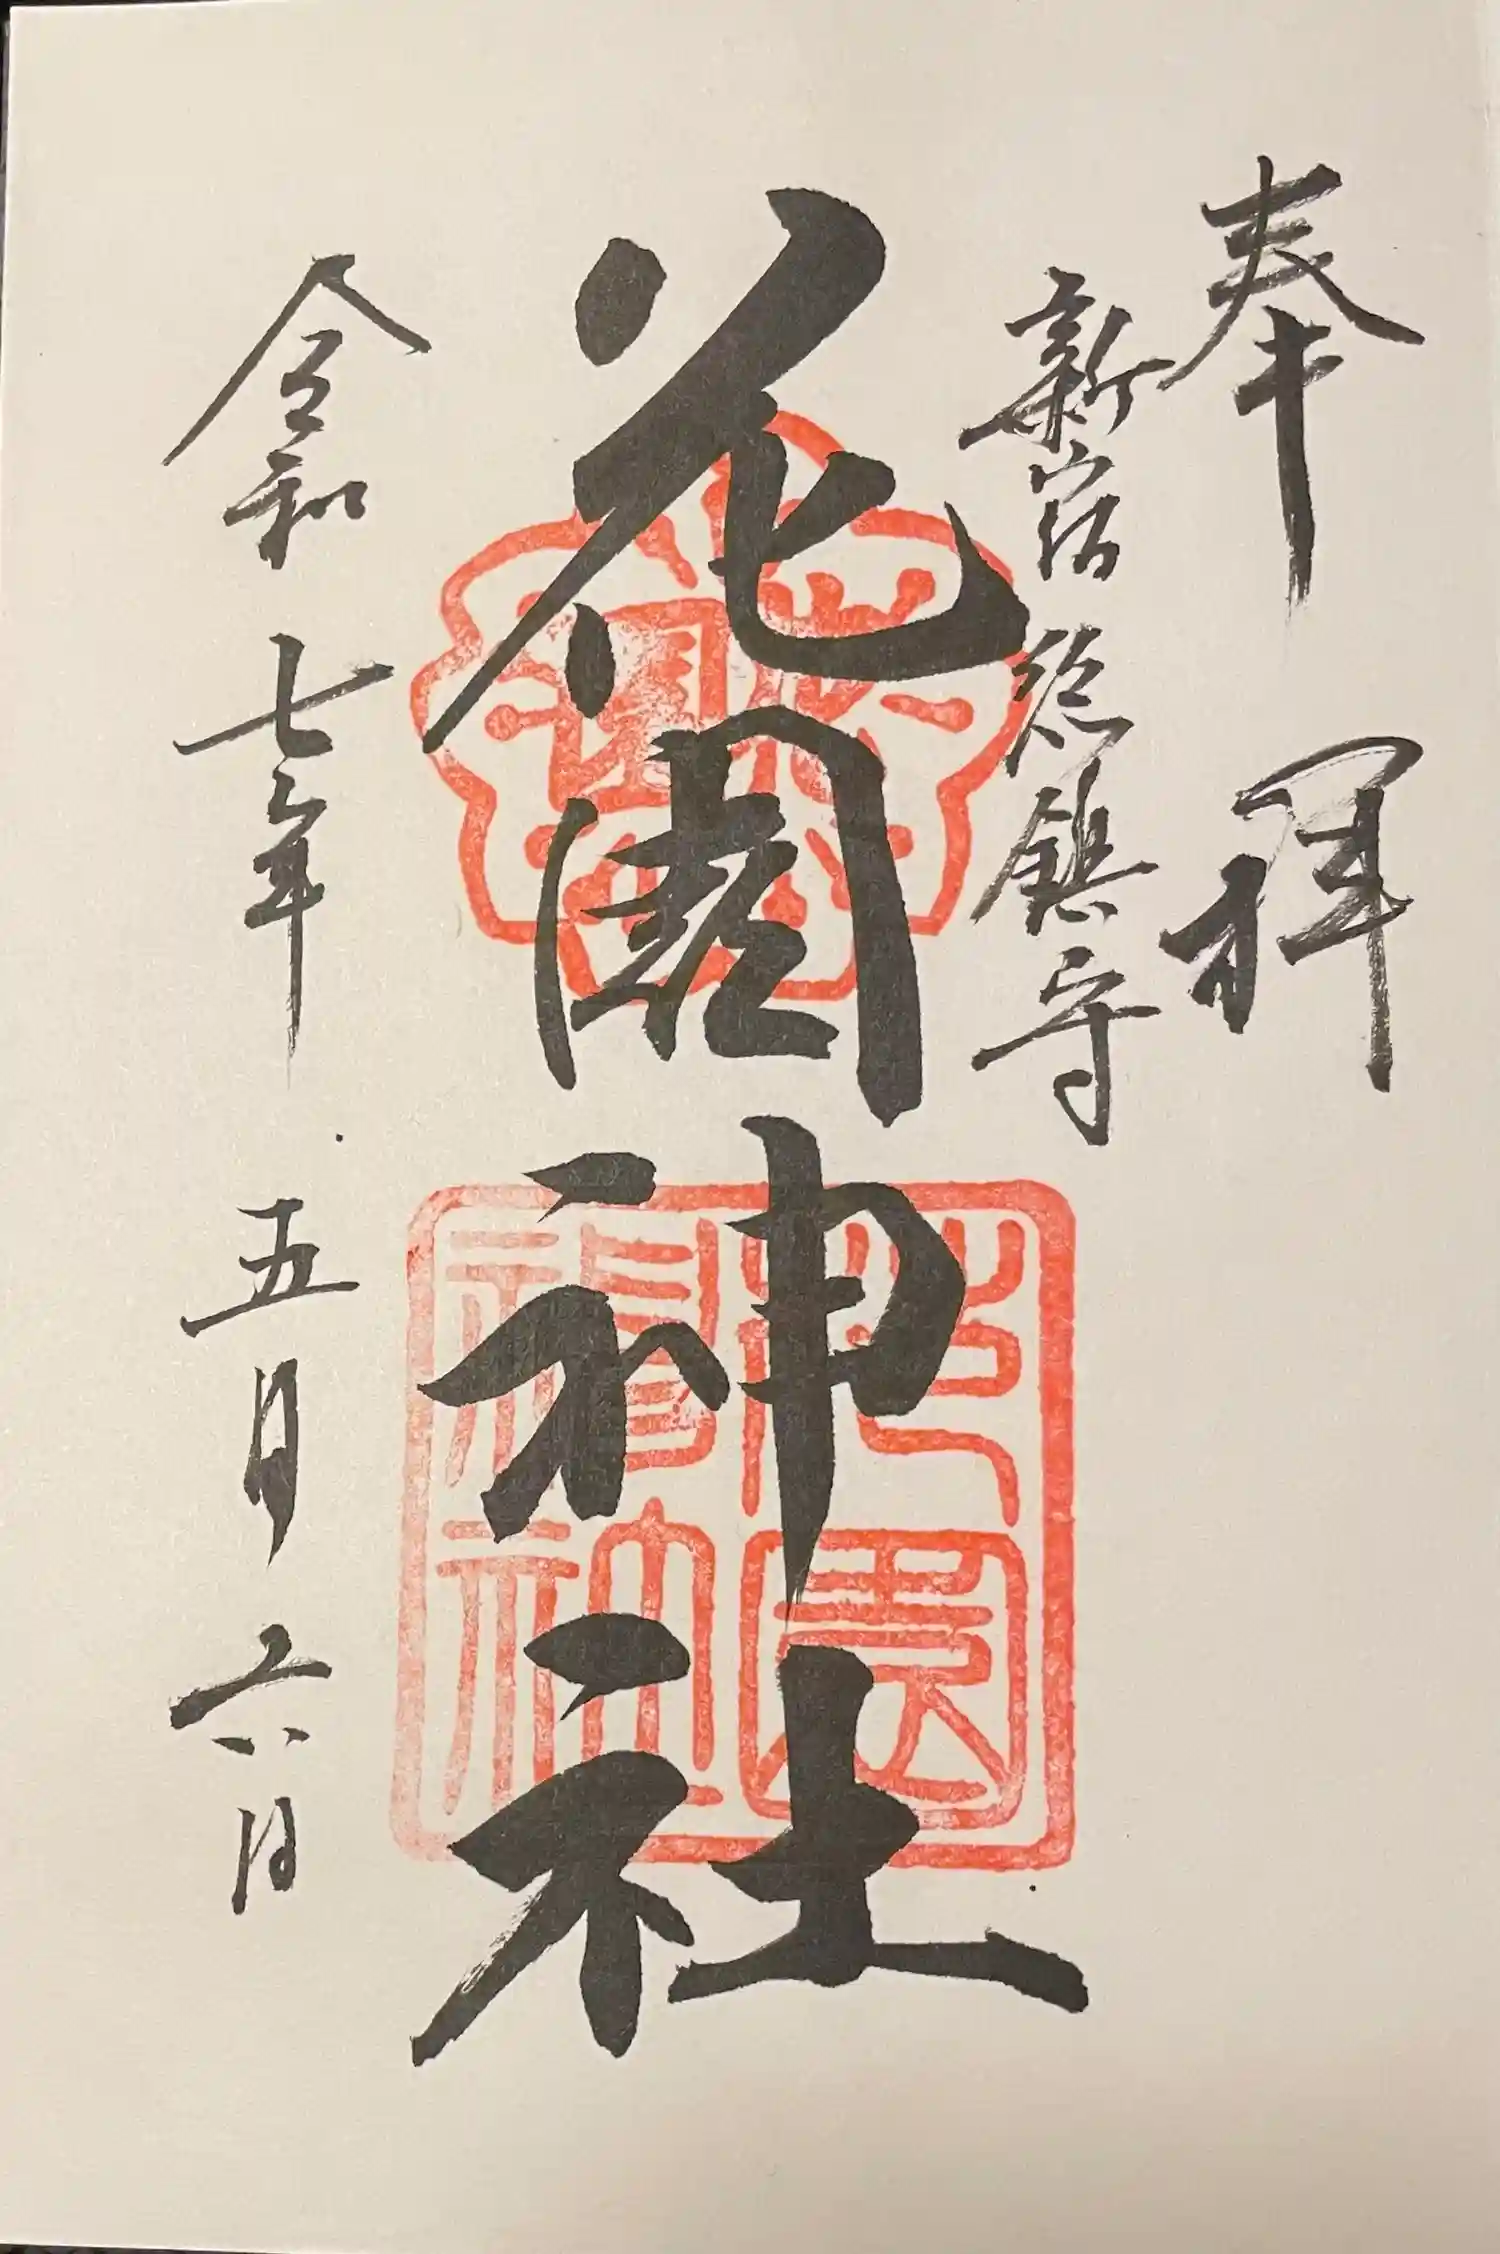 奉拝
新宿総鎮守
花園神社
令和七年 五月 六日
花園
花園神社